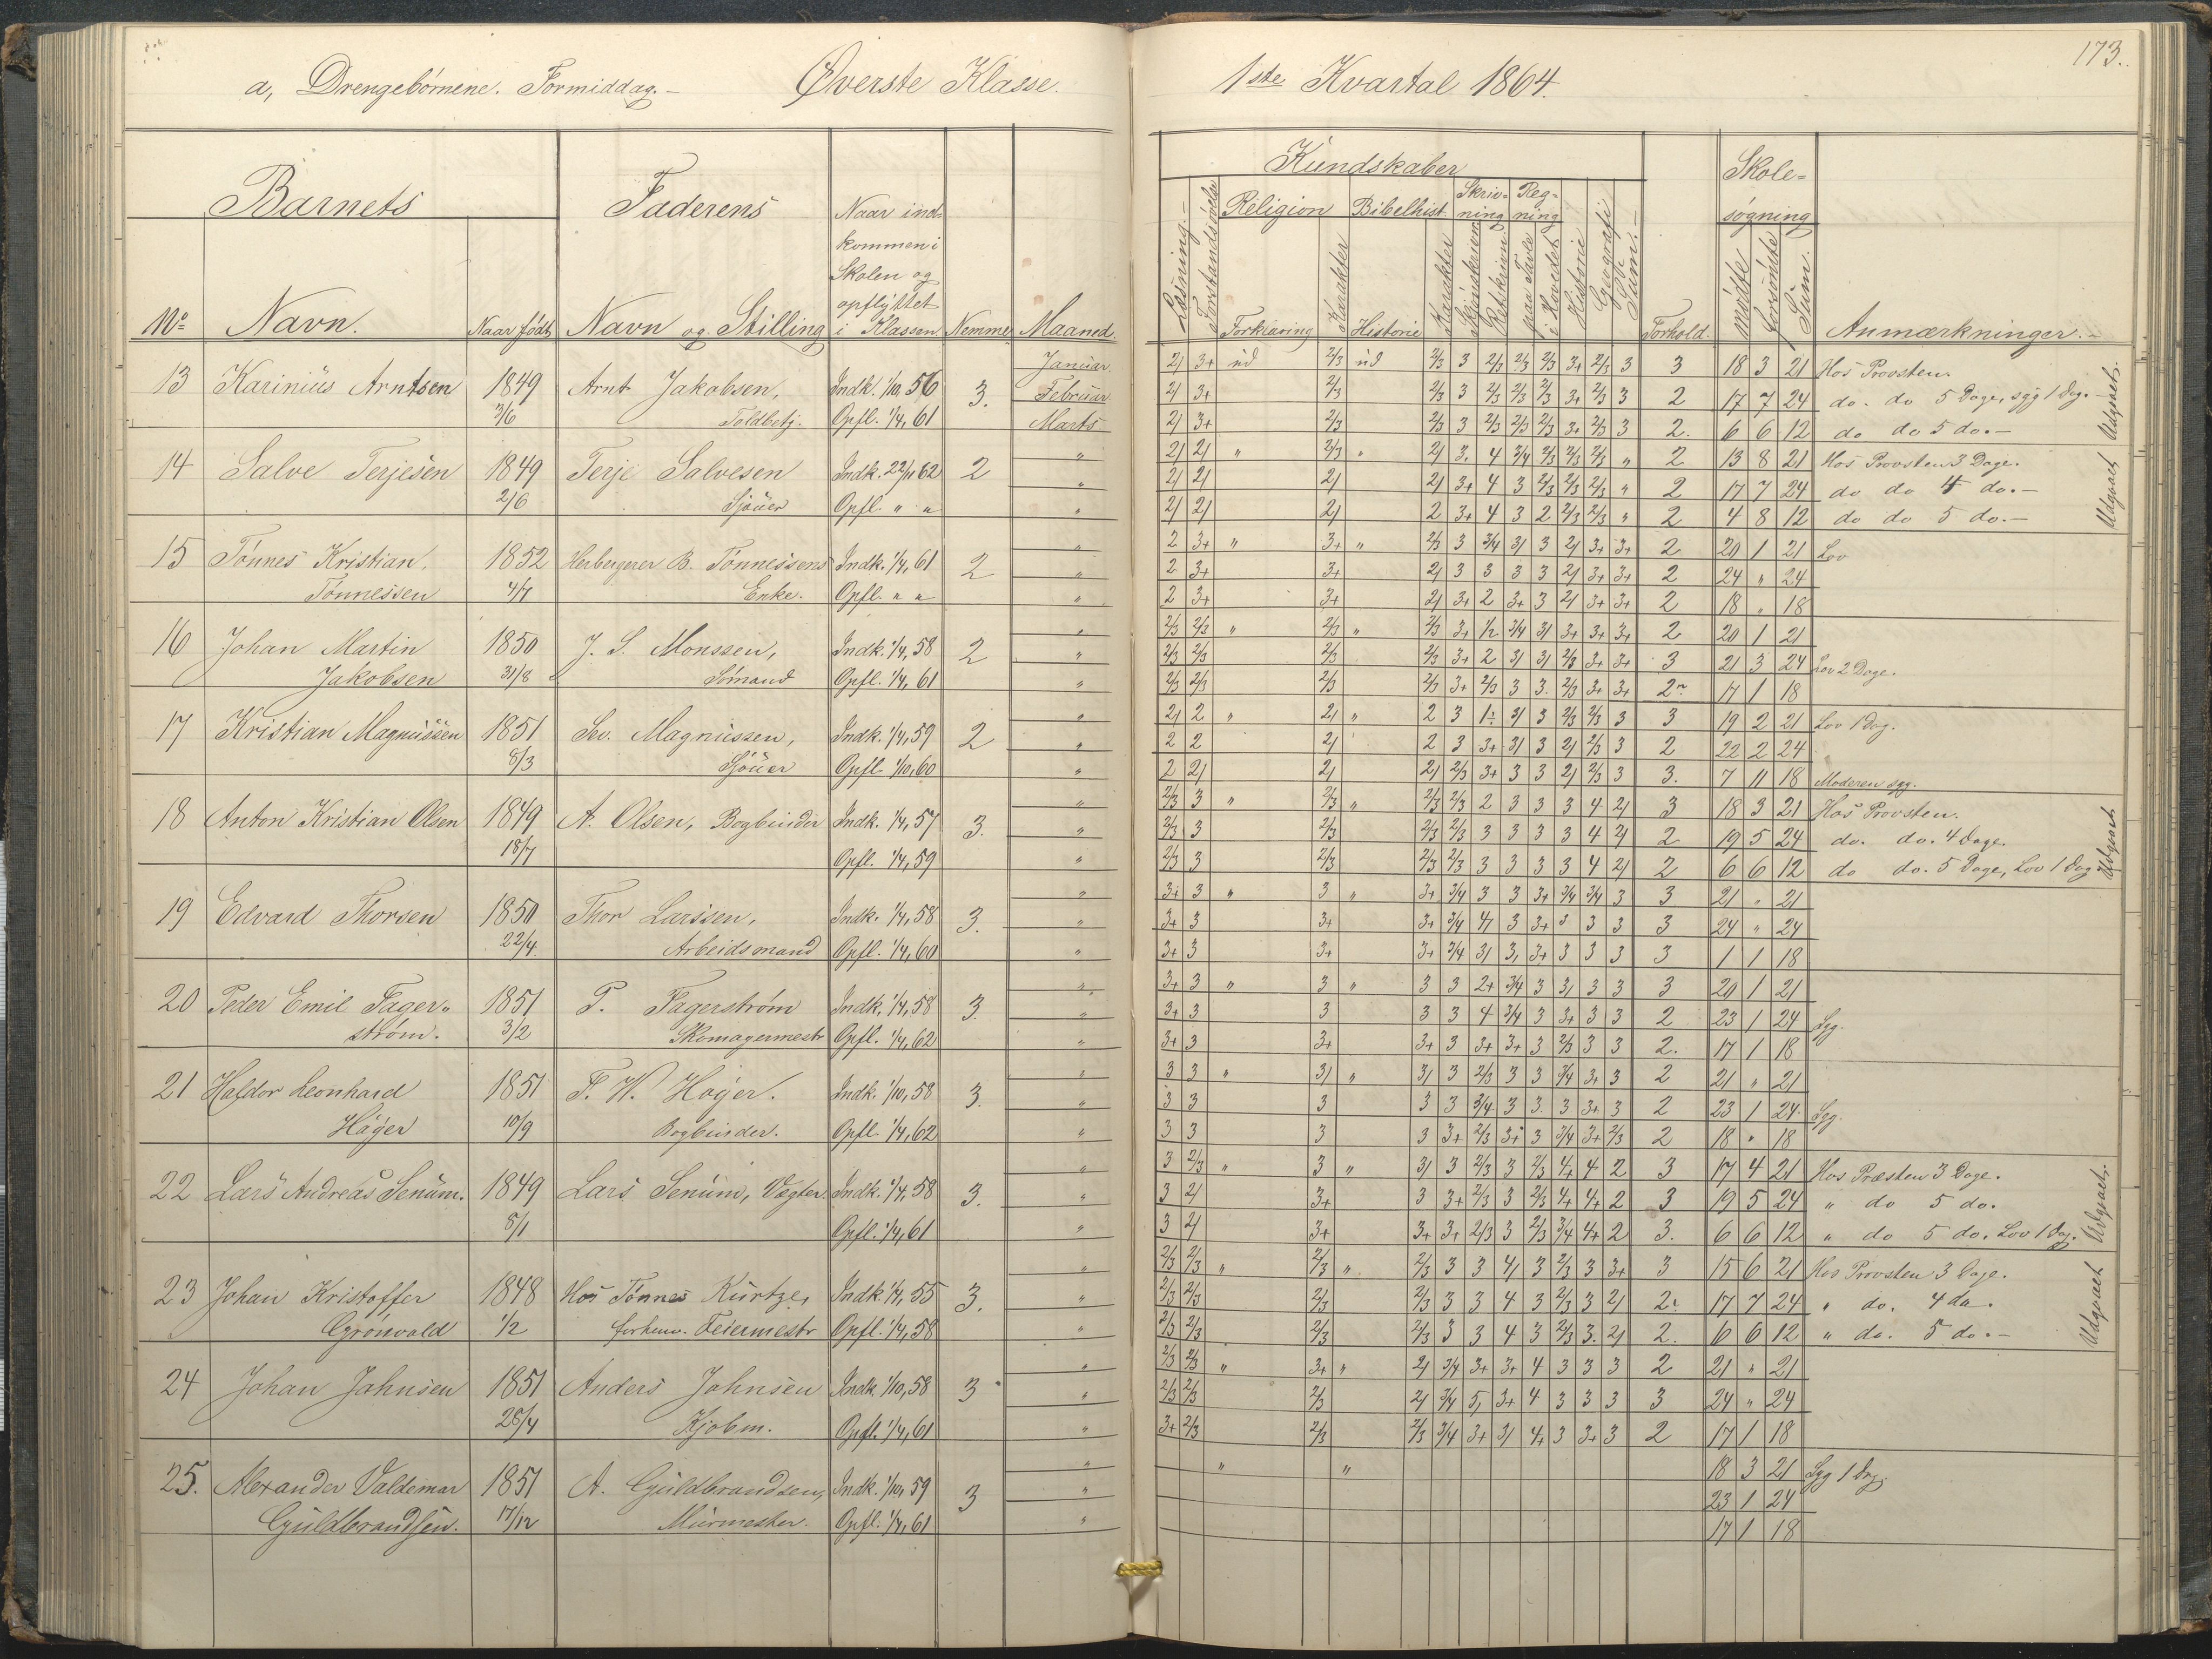 a, Drengebørnene. Formiddag. – Øverste Klasse.
1ste Kvartal 1864.
173.
Barnets
Faderens
Naar ind-
kommen i
Skolen og
opflyttet
i Klassen.
No Navn. Naar født Navn og Stilling Nemme Maaned.
Kundskaber
Skole-
søgning
Læsning. Forstandsøvelse Religion Bibelhist. Skriv-
ning Reg-
ning
Forklaring Karakter Historie Karakter Skjønskrivn Retskrivn. paa Tavle i Hovedet Historie Geografi Sum. Forhold. mødte forsømte Sum. Anmærkninger. –
13 Karinius Arntsen 1849 Arnt Jakobsen, Indk. 1/10, 56 3. Januar
3/6 Toldbetj. Opfl. 1/4, 61 Februar
Marts
2/ 3+ ud 2/3 ud 2/3 3 2/3 2/3 2/3 3+ 2/3 3 3 18 3 21 Hos Provsten.
2/ 3+ 2/3 2/3 3 2/3 2/3 2/3 3+ 2/3 3 2 17 7 24 do. do 5 Dage, syg 1 Dag. –
2/ 3+ 2/3 2/3 3 2/3 2/3 2/3 3+ 2/3 3 2. 6 6 12 do do 5 do. –
Udgaaet.
14 Salve Terjesen 1849 Terje Salvesen Indk. 22/11 62 2 "
2/6 Sjøuer Opfl. " " "
2/ 2/ " 2/3 " 2/ 3. 4 3/4 2/3 2/3 2/3 " 2 13 8 21 Hos Provsten 3 Dage.
2/ 2/ 2/ 2/ 3+ 4 3 2/3 2/3 2/3 " 2 17 7 24 do do 4 do. –
2/ 2/ 2/ 2 3+ 4 3 2 2/3 2/3 " 2 4 8 12 do do 5 do. –
Udgaaet
15 Tønnes Kristian. 1852 Herbergerer B. Tønnessens Indk. 1/4, 61 2 "
Tønnessen 4/7 Enke. Opfl. " " "
2 3+ " 3+ " 2/3 3 3/4 3/ 3 2/ 3+ 3+ 2 20 1 21 Lov
2 3+ 3+ 2/ 3 3 3 3 2/ 3+ 3+ 2 24 " 24
2 3+ 3+ 2/ 3+ 2 3+ 3 2/ 3+ 3+ 2 18 " 18
16 Johan Martin 1850 J. S. Monssen, Indk. 1/4, 58 2 "
Jakobsen 31/8 Sømand Opfl. 1/4, 61 "
2/3 2/3 " 2/3 " 2/3 3+ 1/2 3/4 3/ 3+ 3+ 3+ 2 20 1 21
2/3 2/3 2/3 2/3 3+ 2 3/ 3/ 2/3 3+ 3+ 3 21 3 24 Lov 2 Dage.
2/3 2/3 2/3 2/3 3+ 2/3 3 3. 2/3 3+ 3+ 2 17 1 18
17 Kristian Magnussen 1851 Sev. Magnussen, Indk. 1/4, 59 2 "
8/3 Sjøuer Opfl. 1/10, 60 "
2/ 2 " 2/ " 2 3 3/ 3 2/3 2/3 3 3 19 2 21 Lov 1 Dag.
2 2 2/ 2 3 3+ 3/ 3 2/ 2/3 3 2 22 2 24
2 2/ 2/ 2/ 2/3 3+ 3 3 2/ 2/3 3 3. 7 11 18 Moderen syg.
18 Anton Kristian Olsen 1849 A. Olsen, Bogbinder Indk. 1/4, 57 3. "
18/7 Opfl. 1/4, 59 "
2/3 3 " 2/3 " 2/3 2/3 2 3 3 3 4 2/ 3 18 3 21 Hos Provsten.
2/3 3 2/3 2/3 2/3 3 3 3 3 4 2/ 2 19 5 24 do. do. 4 Dage.
2/3 3 2/3 2/3 2/3 3 3 3 3 4 2/ 2 6 6 12 do do. 5 Dage, Lov 1 Dag
Udgaaet
19 Edvard Thorsen 1850 Thor Larssen, Indk. 1/4, 58 3. "
22/4. Arbeidsmand Opfl. 1/4, 60 "
3+ 3 " 3 " 3+ 3/4 3 3 3+ 3/4 3/4 3 3 21 " 21
3+ 3 3+ 3+ 3/4 4/ 3 3+ 3 3 3 3 24 " 24
3+ 3 3+ 3+ 3/4 3/ 3, 3+ 3 3 3 3 1 1 18
20 Peder Emil Fager" 1851 P. Fagerstrøm Indk. 1/4, 58 3. "
strøm. 3/2 Skomagermestr Opfl. 1/4, 62 "
3+ 3 " 3 " 3 3 2+ 3/4 3 3/ 3 3 3 20 1 21
3+ 3 3 3 3 4 3/4 3 3+ 3 3 2 23 1 24 Syg.
3+ 3 3+ 3+ 3 3+ 3+ 3 2/3 3 3 2. 17 1 18
21 Haldor Leonhard 1851 F. W. Høyer. Indk. 1/10, 58 3. "
Høyer 10/9 Bogbinder. Opfl. 1/4, 62 "
3 3 " 3/ " 3/ 3 2/3 3 3 3/4 3+ 3 2 21 " 21
3 3 3 3 3 3/4 3 3. 3 3+ 3 2 23 1 24. Syg.
3 3 3 3 3+ 2/3 3+ 3 3/4 3+ 2/3 2 18 " 18
22 Lars Andreas Senum. 1849 Lars Senum, Vægter Indk. 1/4. 58 3. "
8/1 Opfl. 1/4, 61 "
3 2/3 " 3 " 3/ 3 2/3 3 2/3 4+ 4 2 3 17 4 21 Hos Præsten 3 Dage.
3 2/ 3+ 3 3+ 2/3 3 2/3 4+ 4+ 2 3 19 5 24 " do 5 do.
3 2/ 3+ 3+ 3+ 2/3 3 2/3 3/4 4+ 2 3. 6 6 12 " do 5 do. Lov 1 Dag.
Udgaaet.
23 Johan Kristoffer 1848 Hos Tønnes Kurtze, Indk. 1/4, 55 3. "
Grønvold 1/2 forhenv. Feiermestr Opfl. 1/4, 58 "
2/3 2/3 " 2/3 " 2/3 3 3 4/ 3 2/3 3 3+ 3 15 6 21 Hos Provsten 3 Dage.
2/3 2/3 2/3 2/3 3 3 4 3 2/3 3 2/ 2. 17 7 24 " do. 4 do.
2/3 2/3 2/3 2/3 3 3 4 3 2/3 3. 2/ 2. 6 6 12 " do. 5 do. –
Udgaaet
24 Johan Johnsen 1851 Anders Johnsen Indk 1/10, 58 3 "
28/4 Kjøbm. Opfl. 1/4, 61 "
2/3 2/3 " 3+ " 2/ 3/4 3+ 3+ 4 3 3 3 2 21 " 21
2/3 2/3 2/3 2/ 3/4 5, 3+ 4 3 3 3 3 24 " 24
3+ 2/3 2/3 2/3 3/4 3+ 3/ 4+ 3 3+ 3 2 17 1 18
25. Alexander Valdemar 1851 A. Guldbrandsen, Indk. 1/10, 59 3 "
Guldbrandsen. 17/12 Murmester. Opfl. 1/4, 61 "
" " 18 3 21 Syg 1 Dag.
23 1 24
17 1 18